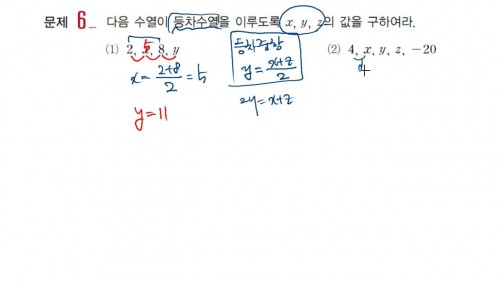 문제 6_ 다음 수열이 등차수열을 이루도록 x, y, z의 값을 구하여라.
(1) 2, x, 8, y
(2) 4, x, y, z, -20
5
등차중항
x = 2+8/2 = 5
y = x+z/2
d
2y = x+z
y = 11